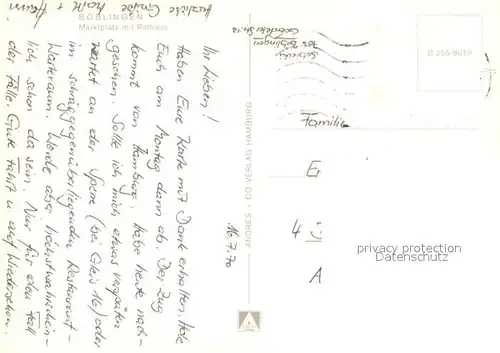 BÖBLINGEN
Marktplatz mit Rathaus
Herzliche Grüße
16.7.70
Ihr Lieben!
Habe Eure Karte mit Dank erhalten. Hole
Euch am Montag dann ab. Der Zug
kommt von Hamburg. Habe heute nach-
gesehen. Sollte ich mich etwas verspäten
wartet an der Sperre (bei Gleis 16) oder
im schräggegenüberliegenden Restaurant-
Warteraum. Werde aber höchstwahrschein-
lich schon da sein. Nur für den Fall
der Fälle. Gute Fahrt u. auf Wiedersehen.
ANDRES + CO VERLAG HAMBURG
703 Böblingen
B 255/8010
Familie
Er
4
A
privacy protection